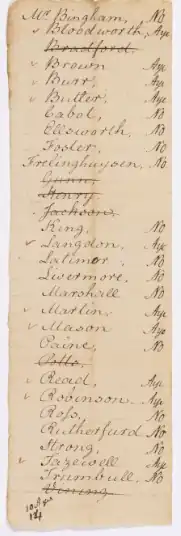 Mr. Bingham, No
v Bloodworth, Aye
Bradford.
v Brown Aye
v Burr, Aye
v Butler, Aye
Cabot, No
Ellsworth, No
Foster, No
Frelinghuysen, No
Gunn,
Henry
Jackson.
King, No
v Langdon, Aye
Latimer No
Livermore, No
Marshall No
v Martin, Aye
v Mason Aye
Paine, No
Potts,
v Read, Aye
v Robinson Aye
Ross, No
Rutherfurd No
Strong, No
v Tazewell Aye
Trumbull, No
Vining
10 Aye
14